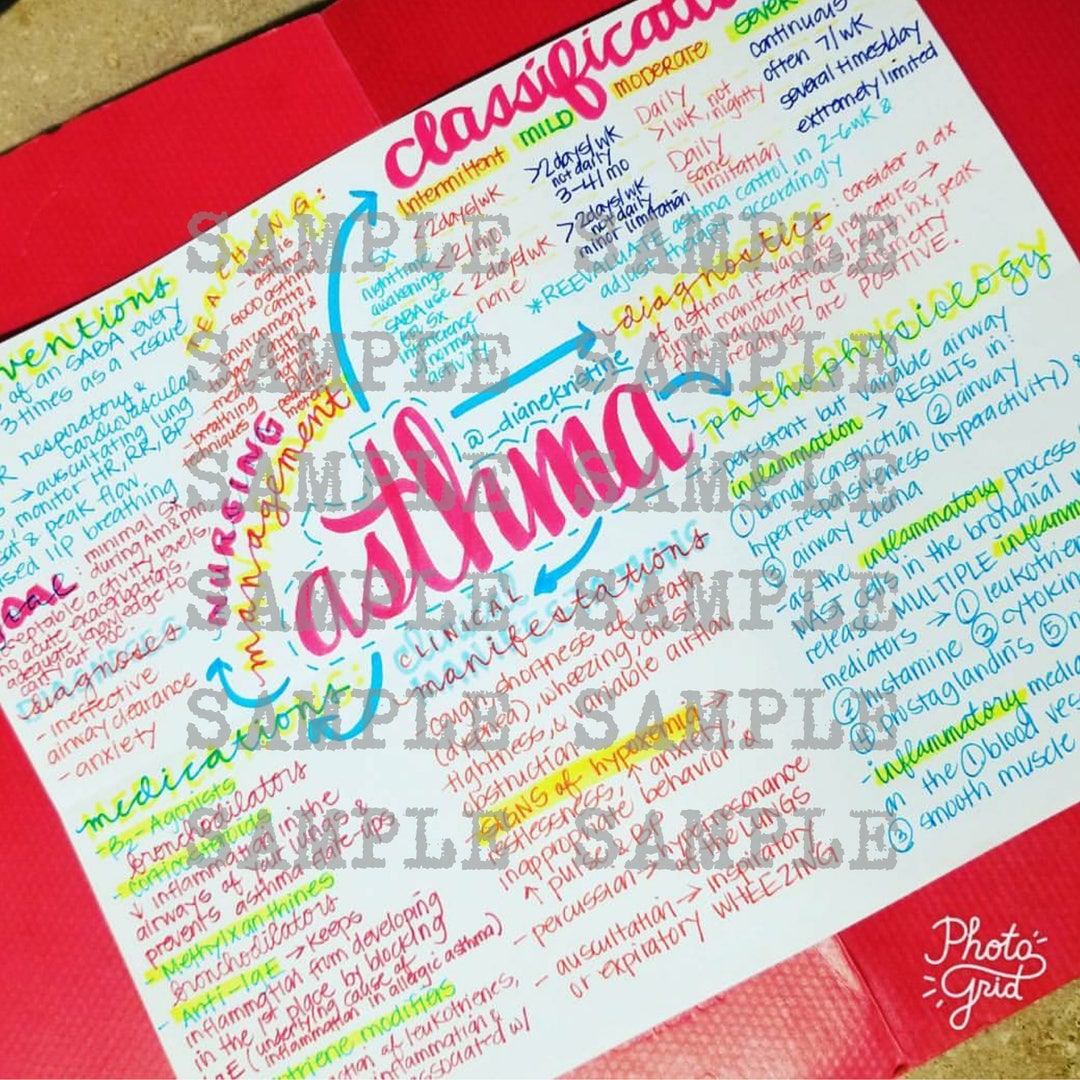 classificati
Intermittent MILD MODERATE
<2days/wk
2x/mo
<2days/wk
none
>2days/wk
not daily
3-4/mo
>2days/wk
not daily
minor limitation
Daily
>1/wk, not
nightly
Daily
some
limitation
continuous
often 7/wk
several times/day
extremely limited
SX
nighttime
awakenings
SABA use
for SX
interference
w/ normal
activity
*REEVALUATE asthma control in 2-6wk &
adjust therapy accordingly
diagnostics: consider a dx
of asthma if various indicators →
clinical manifestations, health hx, peak
flow variability or spirometry
readings are POSITIVE.
pathophysiology
- persistent but variable airway
inflammation → RESULTS in:
① bronchoconstriction ② airway
hyperresponsiveness (hyperactivity) &
③ airway edema
- as the inflammatory process
mast cells in the bronchial
release MULTIPLE inflamm
mediators → ① leukotrien
② histamine ③ cytokin
④ prostaglandins ⑤
- inflammatory media
on the ① blood ves
③ smooth muscle
asthma
@_dianekristine
CLINICAL
manifestations
(cough, shortness of breath
(dyspnea), wheezing, chest
tightness, & variable airflow
obstruction
signs of hypoxemia →
restlessness, ↑ anxiety,
inappropriate behavior, &
↑ pulse & BP
- percussion → hyperresonance
of the LUNGS
- auscultation → inspiratory
or expiratory WHEEZING
NURSING
management
TEACHING:
good asthma
control
environment &
trigger
- breathing
techniques
ventions
of an SABA every
3 times as a rescue
respiratory &
cardiovascular
→ auscultating lung
monitor HR, RR, BP
sat & peak flow
lip breathing
goal: minimal SX
during AM & pm
acceptable activity levels,
no acute exacerbations,
adequate knowledge to
carry out POC
diagnoses
- ineffective
airway clearance
- anxiety
medications:
- B2-Agonists
bronchodilators
- corticosteroids
↓ inflammation in the
airways of the lungs &
prevents asthma flare-ups
- Methylxanthines
bronchodilators
- Anti-IgE → keeps
inflammation from developing
in the 1st place by blocking
IgE (underlying cause of
inflammation in allergic asthma)
triene modifiers
action of leukotrienes,
inflammation &
associated w/
SAMPLE SAMPLE SAMPLE
SAMPLE SAMPLE SAMPLE
SAMPLE SAMPLE SAMPLE
SAMPLE SAMPLE SAMPLE
SAMPLE SAMPLE SAMPLE
SAMPLE SAMPLE SAMPLE
Photo
Grid